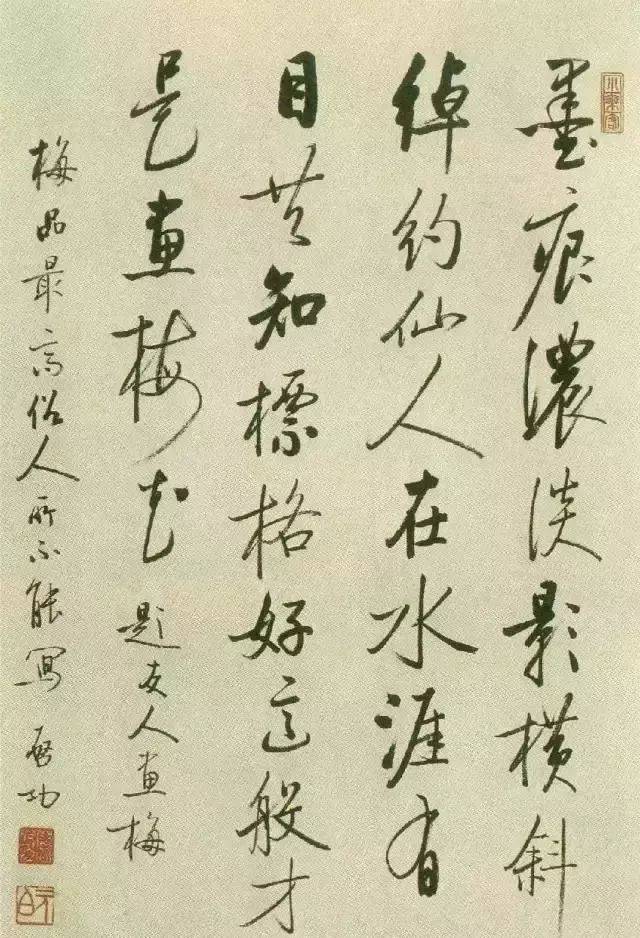 小乘客
墨痕濃淡影橫斜
綽約仙人在水涯有
目共知標格好這般才
是畫梅花 題友人畫梅
梅品最高俗人所不能寫 啓功
元白